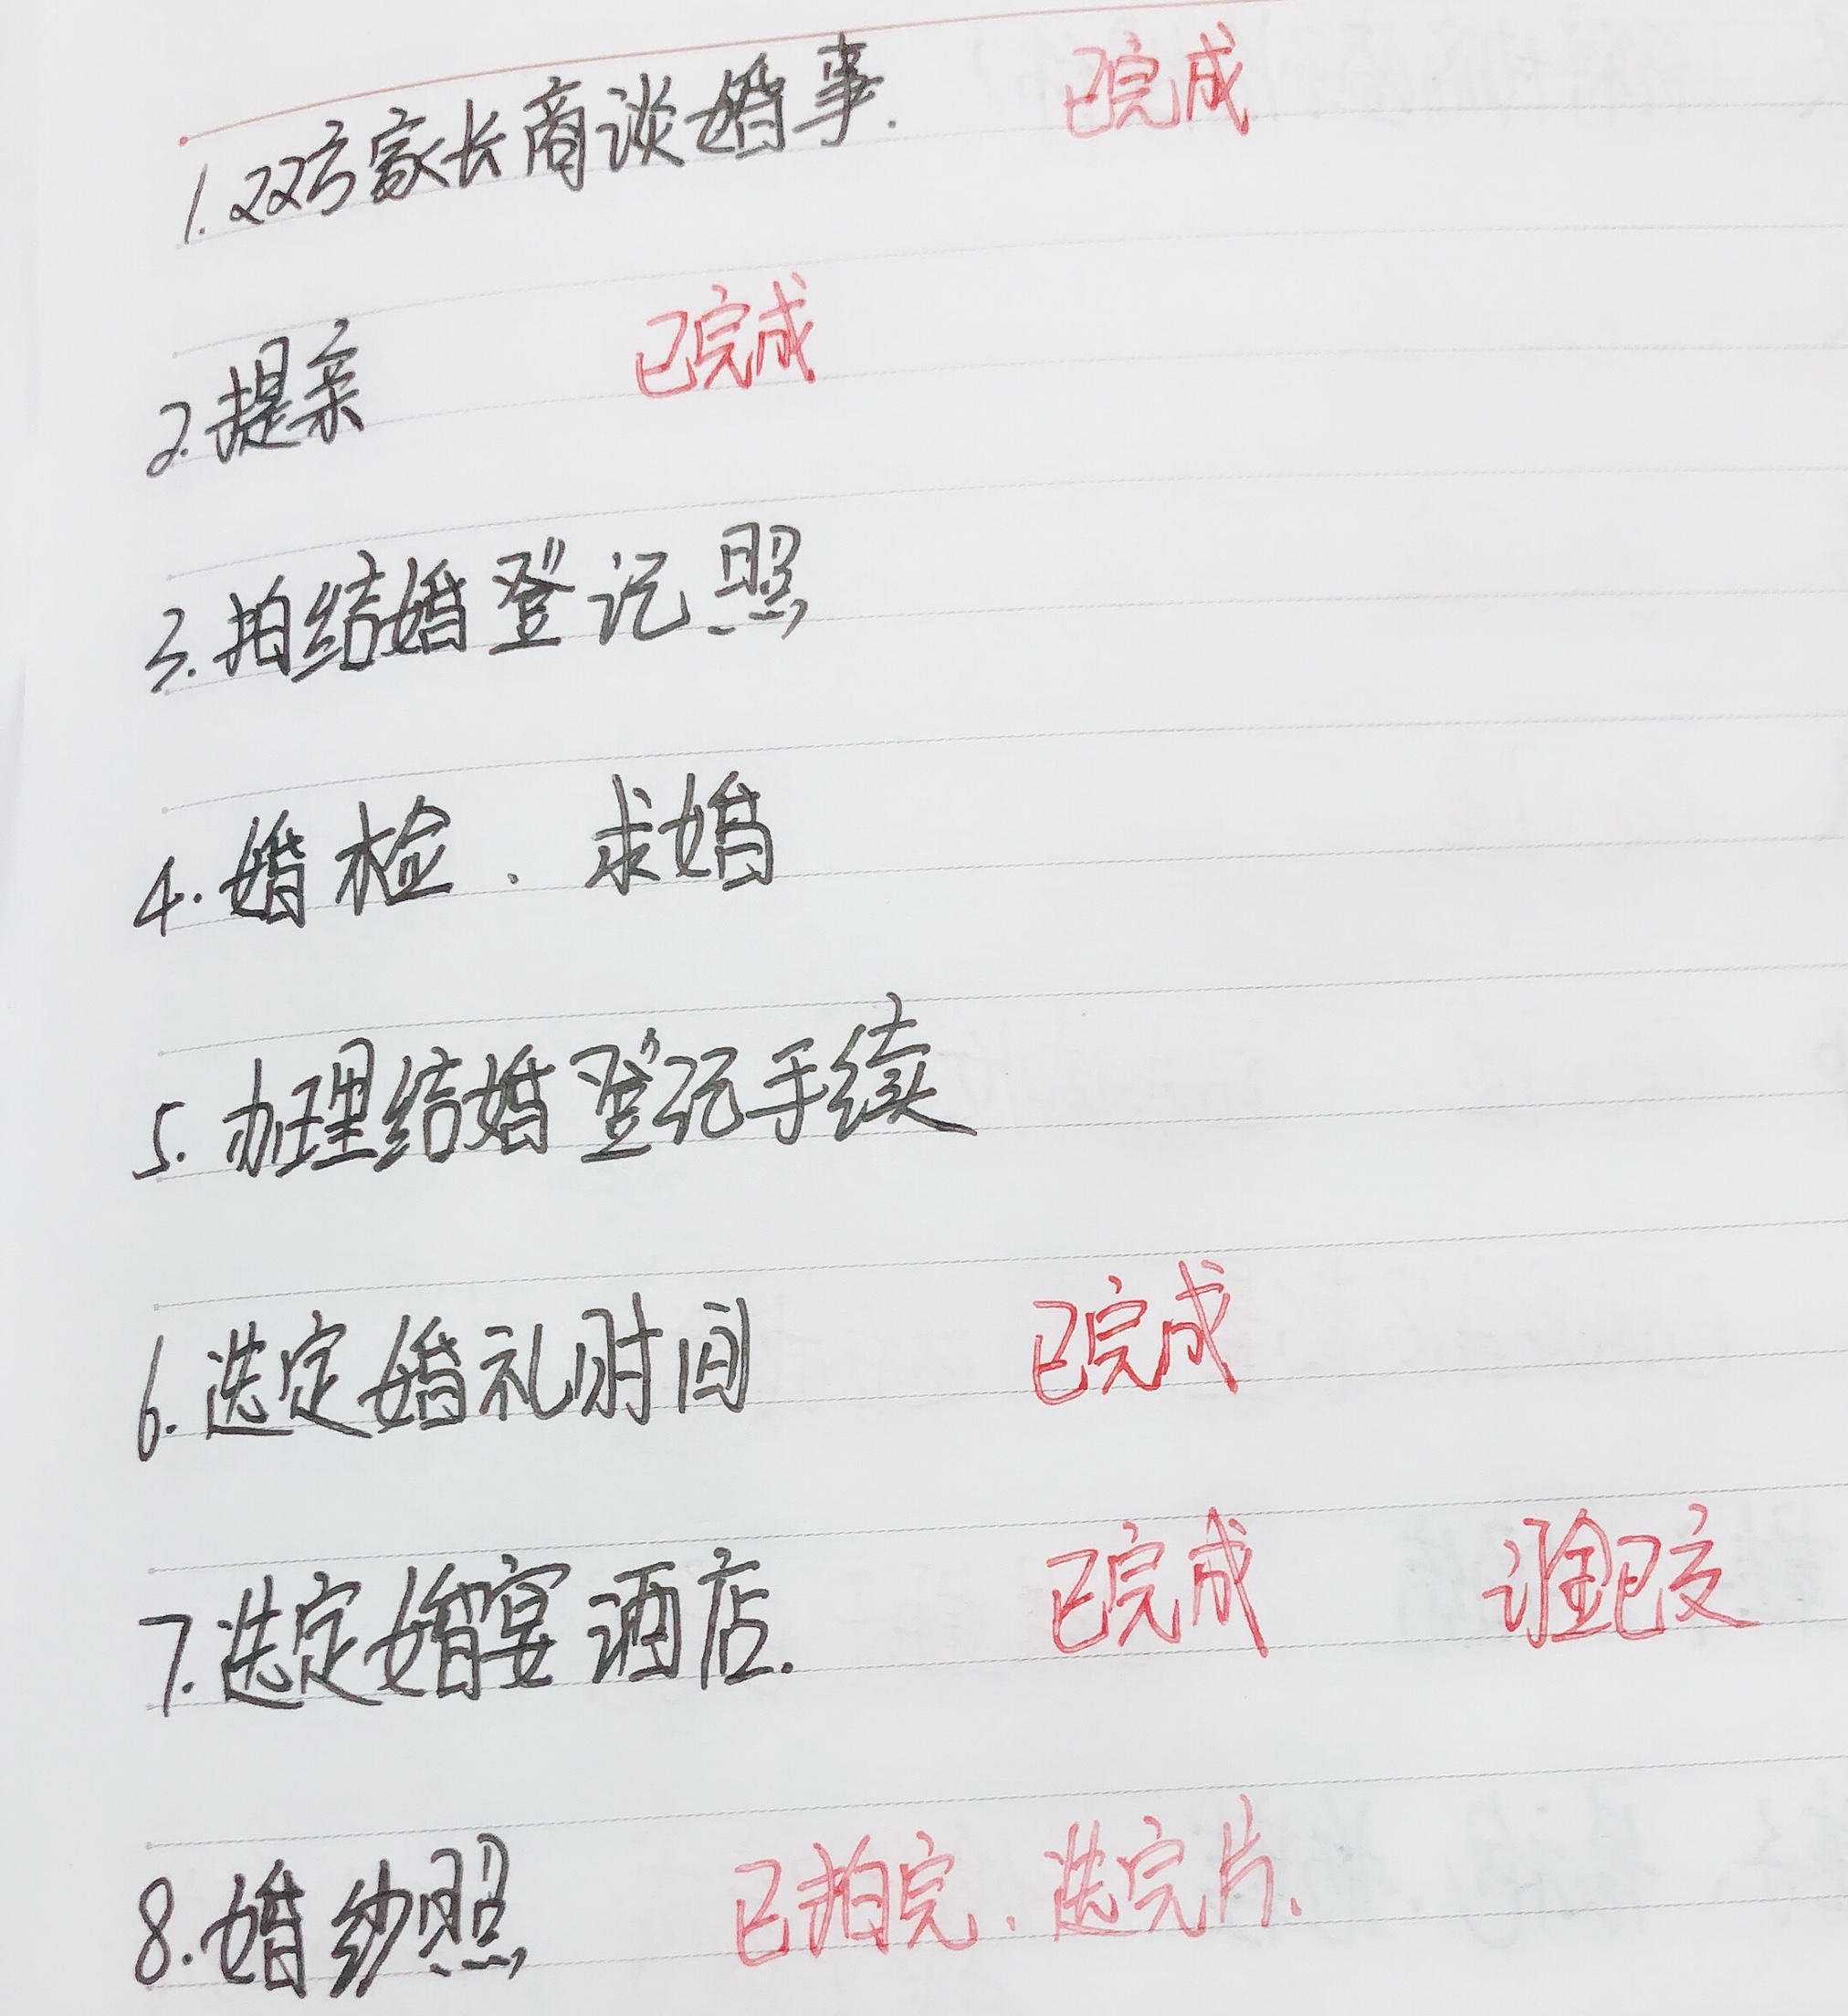 1.双方家长商谈婚事. 已完成
2.提亲 已完成
3.拍结婚登记照
4.婚检、求婚
5.办理结婚登记手续
6.选定婚礼时间 已完成
7.选定婚宴酒店. 已完成 订金已交
8.婚纱照 已拍完、选完片.